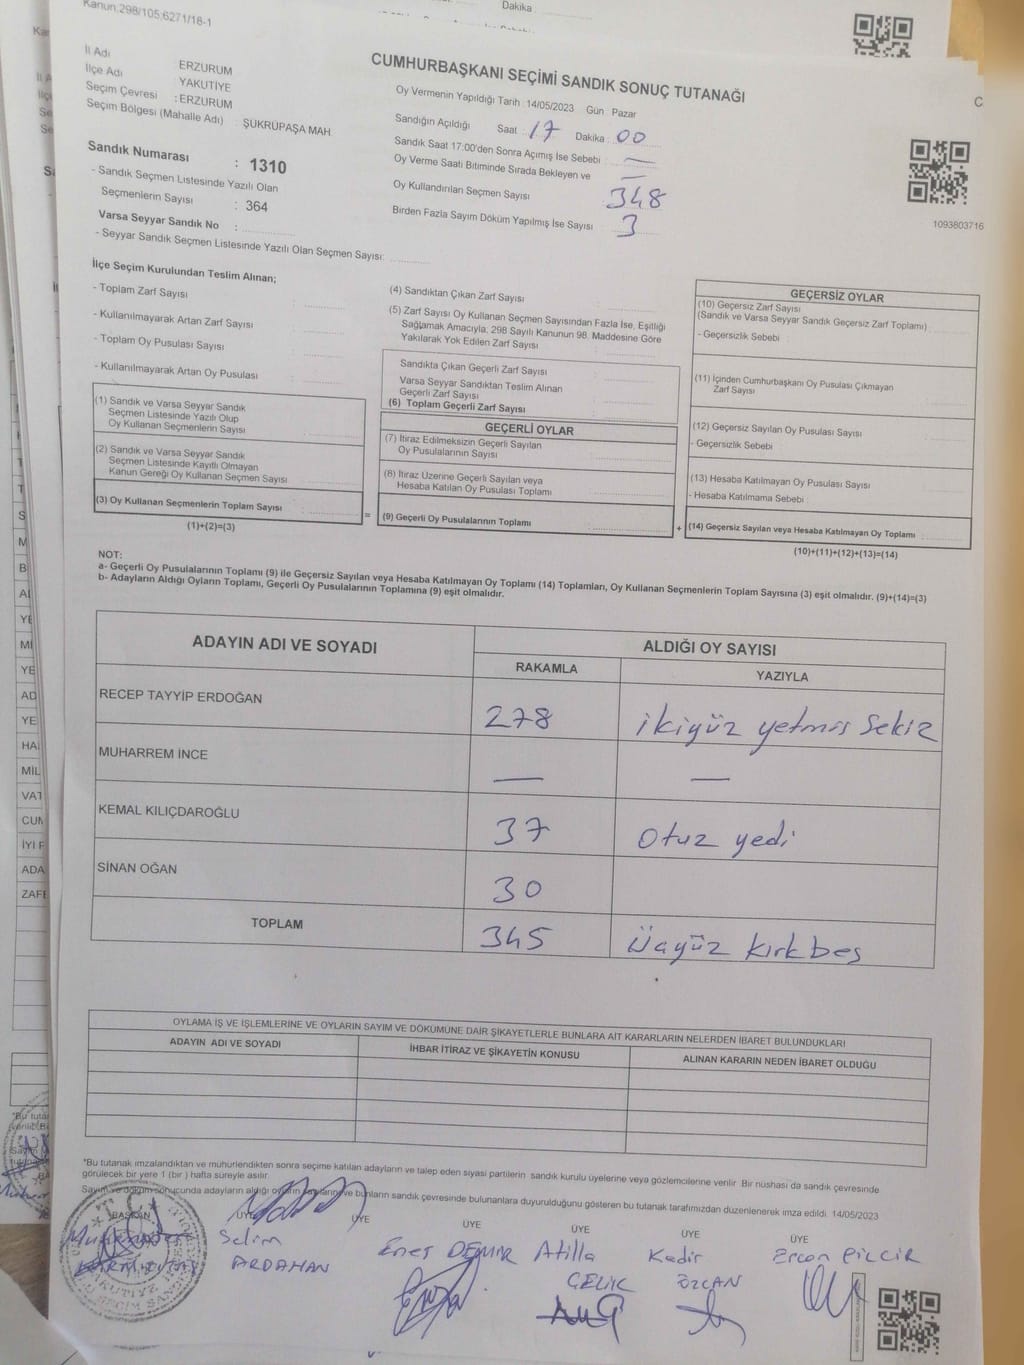 Kanun.298/105,6271/18-1
Dakika
CUMHURBAŞKANI SEÇİMİ SANDIK SONUÇ TUTANAĞI
İl Adı ERZURUM
İlçe Adı YAKUTİYE
Seçim Çevresi : ERZURUM
Seçim Bölgesi (Mahalle Adı) : ŞÜKRÜPAŞA MAH.
Sandık Numarası : 1310
- Sandık Seçmen Listesinde Yazılı Olan
Seçmenlerin Sayısı : 364
Varsa Seyyar Sandık No :
- Seyyar Sandık Seçmen Listesinde Yazılı Olan Seçmen Sayısı:
Oy Vermenin Yapıldığı Tarih 14/05/2023 Gün Pazar
Sandığın Açıldığı Saat : 17 Dakika : 00
Sandık Saat 17:00'den Sonra Açılmış İse Sebebi : —
Oy Verme Saati Bitiminde Sırada Bekleyen ve —
Oy Kullandırılan Seçmen Sayısı 348
Birden Fazla Sayım Döküm Yapılmış İse Sayısı 3
1093803716
İlçe Seçim Kurulundan Teslim Alınan;
- Toplam Zarf Sayısı :
- Kullanılmayarak Artan Zarf Sayısı :
- Toplam Oy Pusulası Sayısı :
- Kullanılmayarak Artan Oy Pusulası :
(1) Sandık ve Varsa Seyyar Sandık
Seçmen Listesinde Yazılı Olup
Oy Kullanan Seçmenlerin Sayısı :
(2) Sandık ve Varsa Seyyar Sandık
Seçmen Listesinde Kayıtlı Olmayan
Kanun Gereği Oy Kullanan Seçmen Sayısı :
(3) Oy Kullanan Seçmenlerin Toplam Sayısı :
(1)+(2)=(3)
=
(4) Sandıktan Çıkan Zarf Sayısı :
(5) Zarf Sayısı Oy Kullanan Seçmen Sayısından Fazla İse, Eşitliği
Sağlamak Amacıyla, 298 Sayılı Kanunun 98. Maddesine Göre
Yakılarak Yok Edilen Zarf Sayısı :
Sandıkta Çıkan Geçerli Zarf Sayısı :
Varsa Seyyar Sandıktan Teslim Alınan
Geçerli Zarf Sayısı :
(6) Toplam Geçerli Zarf Sayısı :
GEÇERLİ OYLAR
(7) İtiraz Edilmeksizin Geçerli Sayılan
Oy Pusulalarının Sayısı :
(8) İtiraz Üzerine Geçerli Sayılan veya
Hesaba Katılan Oy Pusulası Toplamı :
(9) Geçerli Oy Pusulalarının Toplamı :
+
GEÇERSİZ OYLAR
(10) Geçersiz Zarf Sayısı
(Sandık ve Varsa Seyyar Sandık Geçersiz Zarf Toplamı) :
- Geçersizlik Sebebi :
(11) İçinden Cumhurbaşkanı Oy Pusulası Çıkmayan
Zarf Sayısı :
(12) Geçersiz Sayılan Oy Pusulası Sayısı :
- Geçersizlik Sebebi :
(13) Hesaba Katılmayan Oy Pusulası Sayısı :
- Hesaba Katılmama Sebebi :
(14) Geçersiz Sayılan veya Hesaba Katılmayan Oy Toplamı :
(10)+(11)+(12)+(13)=(14)
NOT:
a- Geçerli Oy Pusulalarının Toplamı (9) ile Geçersiz Sayılan veya Hesaba Katılmayan Oy Toplamı (14) Toplamları, Oy Kullanan Seçmenlerin Toplam Sayısına (3) eşit olmalıdır. (9)+(14)=(3)
b- Adayların Aldığı Oyların Toplamı, Geçerli Oy Pusulalarının Toplamına (9) eşit olmalıdır.
ADAYIN ADI VE SOYADI ALDIĞI OY SAYISI
RAKAMLA YAZIYLA
RECEP TAYYİP ERDOĞAN 278 ikiyüz yetmis Sekiz
MUHARREM İNCE — —
KEMAL KILIÇDAROĞLU 37 Otuz yedi
SİNAN OĞAN 30
TOPLAM 345 Üçyüz kırkbeş
OYLAMA İŞ VE İŞLEMLERİNE VE OYLARIN SAYIM VE DÖKÜMÜNE DAİR ŞİKAYETLERLE BUNLARA AİT KARARLARIN NELERDEN İBARET BULUNDUKLARI
ADAYIN ADI VE SOYADI İHBAR İTİRAZ VE ŞİKAYETİN KONUSU ALINAN KARARIN NEDEN İBARET OLDUĞU
*Bu tutanak imzalandıktan ve mühürlendikten sonra seçime katılan adayların ve talep eden siyasi partilerin sandık kurulu üyelerine veya gözlemcilerine verilir. Bir nüshası da sandık çevresinde
görülecek bir yere 1 (bir ) hafta süreyle asılır.
Sayım ve döküm sonucunda adayların aldığı oyların sayılarını ve bunların sandık çevresinde bulunanlara duyurulduğunu gösteren bu tutanak tarafımızdan düzenlenerek imza edildi. 14/05/2023
BAŞKAN ÜYE ÜYE ÜYE ÜYE ÜYE ÜYE
Selim Enes DEMİR Atilla Kadir Ercan
ARDAHAN ÇELİK ÖZCAN